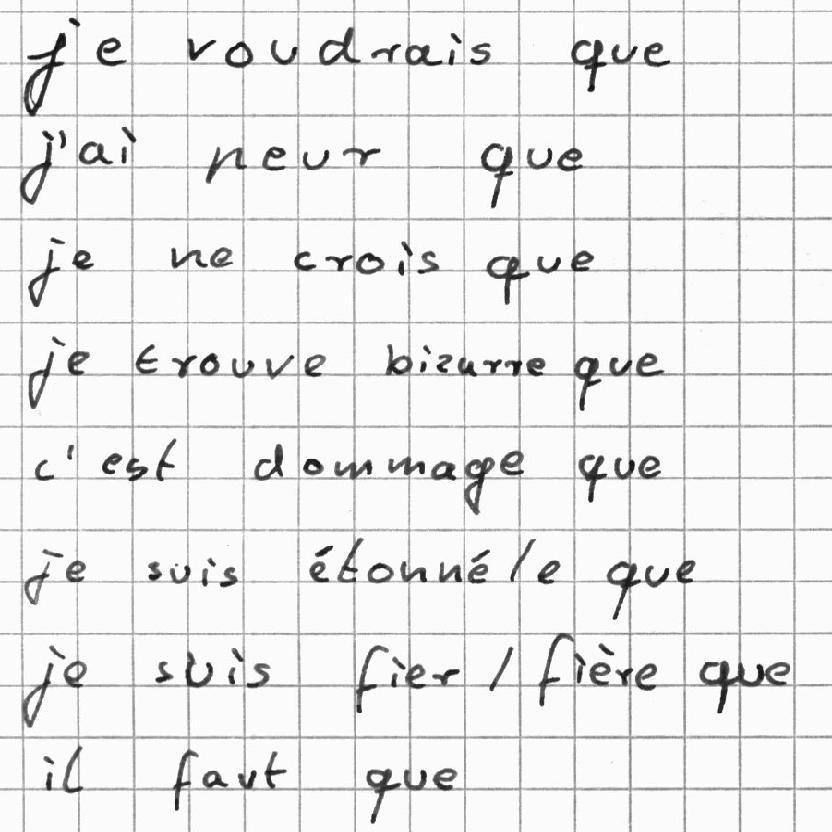 je voudrais que
j'ai peur que
je ne crois que
je trouve bizarre que
c'est dommage que
je suis étonné/e que
je suis fier / fière que
il faut que